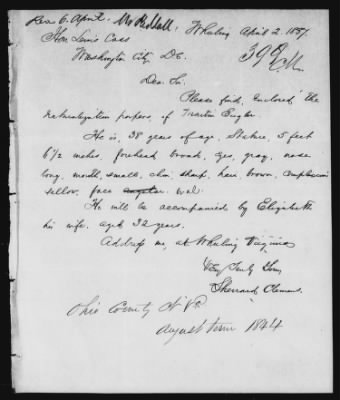 Rec 6. April. Wheeling April 2. 185
Hon Lewis Cass
Washington City, D.C.
Dear Sir.
Please find, enclosed, the
naturalization papers, of
He is, 38 years of age, Stature, 5 feet
6 1/2 inches, forehead broad, eyes, gray, nose
long, mouth, small, chin sharp, hair, brown, complexion
sallow, face oval
He will be accompanied by Elizabeth
his wife, aged 32 years.
Address me, at Wheeling Virginia
Very Truly Yours
Sherrard Clemens.
Ohio County
August term 1844